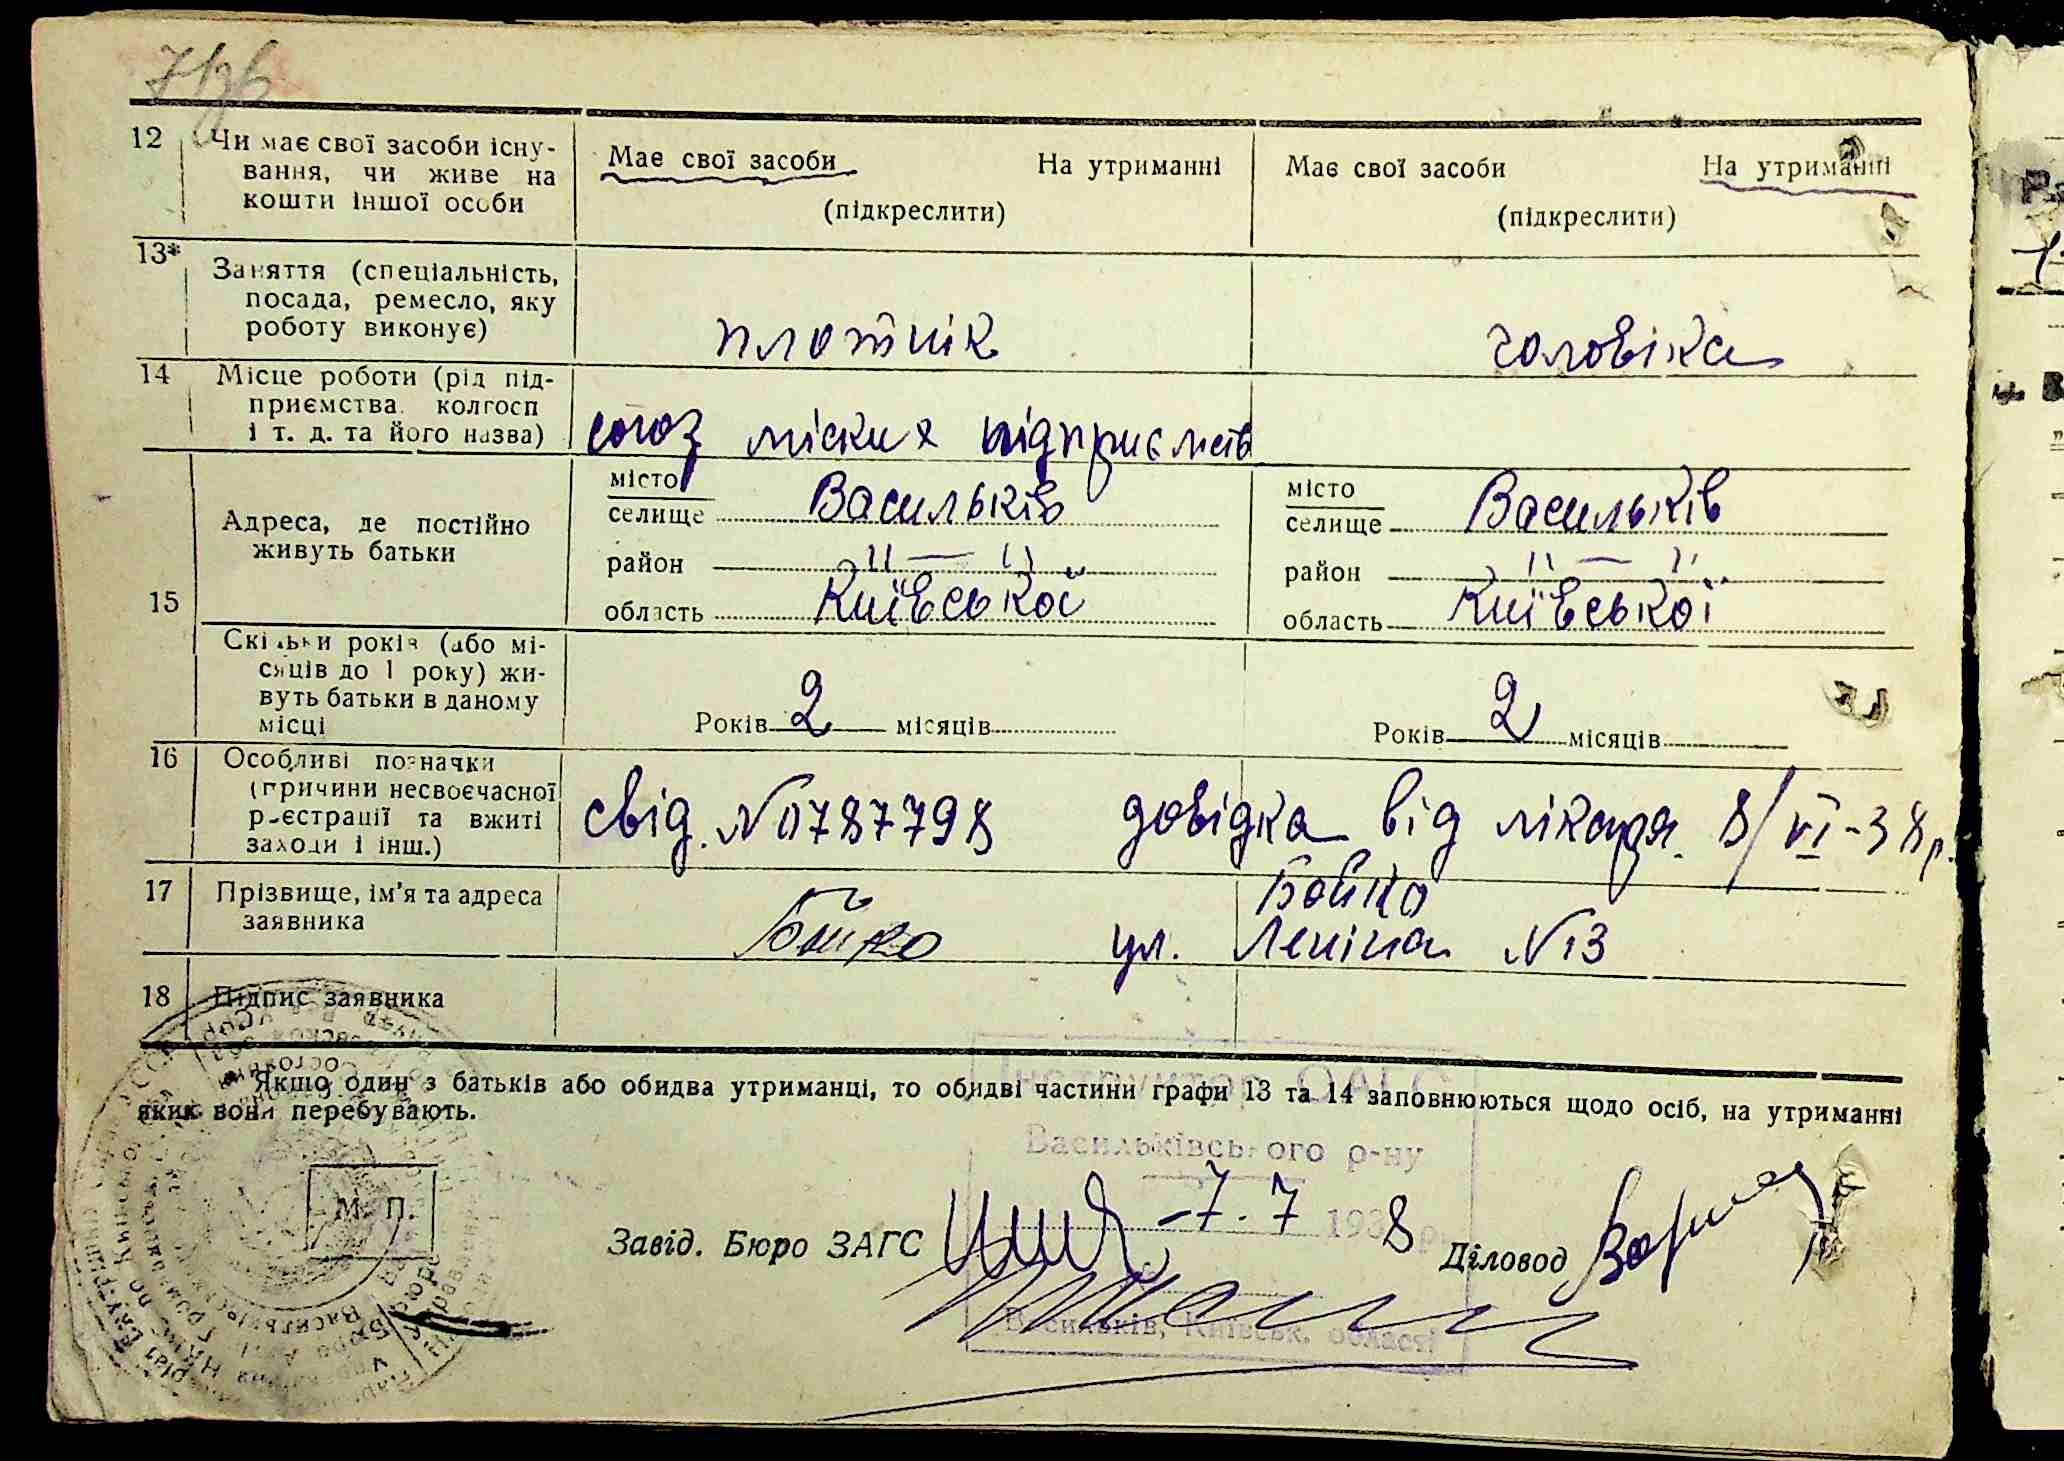 12 Чи має свої засоби існу- Має свої засоби На утриманні Має свої засоби На утриманні
вання, чи живе на
кошти іншої особи (підкреслити) (підкреслити)
13* Заняття (спеціальність,
посада, ремесло, яку
роботу виконує) плотнік чоловіка
14 Місце роботи (рід під-
приємства, колгосп
і т. д. та його назва) союз міских підприємств
місто Васильків місто Васильків
селище селище
Адреса, де постійно
живуть батьки район "—" район "—"
15 область Київської область Київської
Скільки років (або мі-
сяців до 1 року) жи-
вуть батьки в даному
місці Років 2 місяців Років 2 місяців
16 Особливі позначки
(причини несвоєчасної
реєстрації та вжиті свід. №0787798 довідка від лікаря 8/VI-38 р.
заходи і інш.)
17 Прізвище, ім'я та адреса Бойко
заявника Бойко ул. Леніна №13
18 Підпис заявника
* Якщо один з батьків або обидва утриманці, то обидві частини графи 13 та 14 заповнюються щодо осіб, на утриманні
яких вони перебувають.
Інструктор ОАГС
Васильківського р-ну
М. П.
Завід. Бюро ЗАГС 7.7 1938 р. Діловод
Васильків, Київськ. області